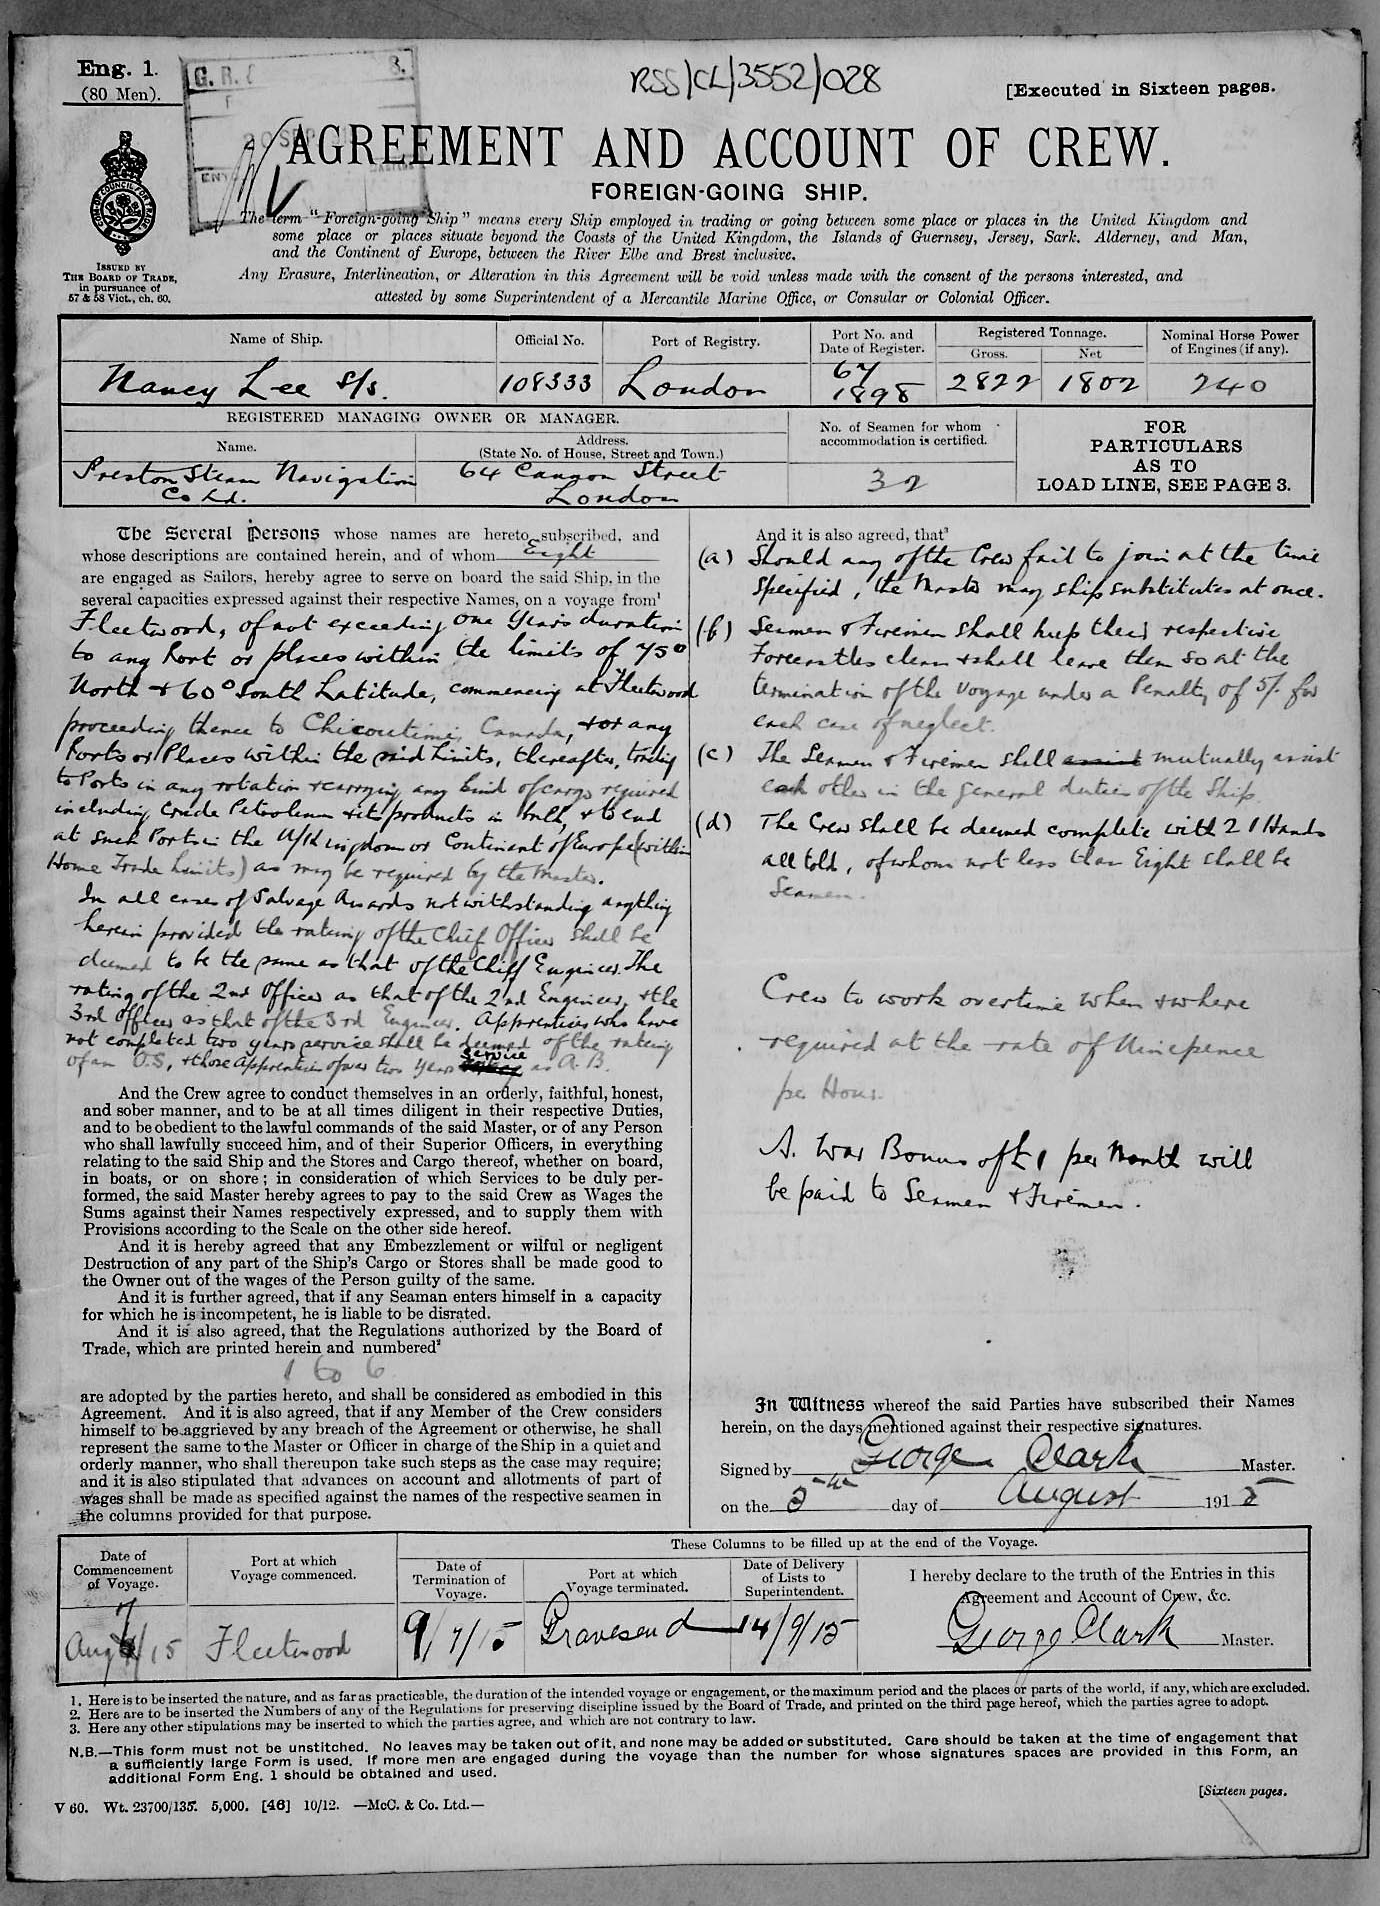 Eng. 1.
(80 Men).
RSS/CL/3552/028
[Executed in Sixteen pages.
G. R.
S.
20 SEP
AGREEMENT AND ACCOUNT OF CREW.
FOREIGN-GOING SHIP.
ISSUED BY
THE BOARD OF TRADE,
in pursuance of
57 & 58 Vict., ch. 60.
The term "Foreign-going Ship" means every Ship employed in trading or going between some place or places in the United Kingdom and
some place or places situate beyond the Coasts of the United Kingdom, the Islands of Guernsey, Jersey, Sark, Alderney, and Man,
and the Continent of Europe, between the River Elbe and Brest inclusive.
Any Erasure, Interlineation, or Alteration in this Agreement will be void unless made with the consent of the persons interested, and
attested by some Superintendent of a Mercantile Marine Office, or Consular or Colonial Officer.
Name of Ship. Official No. Port of Registry. Port No. and Date of Register. Registered Tonnage. Gross. Net Nominal Horse Power of Engines (if any).
Nancy Lee S/s. 108333 London 67 1898 2822 1802 240
REGISTERED MANAGING OWNER OR MANAGER.
Name. Address. (State No. of House, Street and Town.)
No. of Seamen for whom accommodation is certified.
FOR
PARTICULARS
AS TO
LOAD LINE, SEE PAGE 3.
Preston Steam Navigation 64 Cannon Street 32
Co Ltd. London
The Several Persons whose names are hereto subscribed, and
whose descriptions are contained herein, and of whom Eight
are engaged as Sailors, hereby agree to serve on board the said Ship, in the
several capacities expressed against their respective Names, on a voyage from¹
Fleetwood, of not exceeding One Years duration
to any Port or places within the limits of 75°
North & 60° South Latitude, commencing at Fleetwood
proceeding thence to Chicoutimi, Canada, &or any
Ports or Places within the said Limits, thereafter, trading
to Ports in any rotation & carrying any kind of cargo required
including Crude Petroleum & its products in bulk, & to end
at such Ports in the U/Kingdom or Continent of Europe (within
Home Trade Limits) as may be required by the Master.
In all cases of Salvage Awards notwithstanding anything
herein provided the rating of the Chief Officer shall be
deemed to be the same as that of the Chief Engineer. The
rating of the 2nd Officer as that of the 2nd Engineer, & the
3rd Officer as that of the 3rd Engineer. Apprentices who have
not completed two years service shall be deemed of the rating
of an O.S, & those Apprentices over two Years service as A.B.
And the Crew agree to conduct themselves in an orderly, faithful, honest,
and sober manner, and to be at all times diligent in their respective Duties,
and to be obedient to the lawful commands of the said Master, or of any Person
who shall lawfully succeed him, and of their Superior Officers, in everything
relating to the said Ship and the Stores and Cargo thereof, whether on board,
in boats, or on shore; in consideration of which Services to be duly per-
formed, the said Master hereby agrees to pay to the said Crew as Wages the
Sums against their Names respectively expressed, and to supply them with
Provisions according to the Scale on the other side hereof.
And it is hereby agreed that any Embezzlement or wilful or negligent
Destruction of any part of the Ship's Cargo or Stores shall be made good to
the Owner out of the wages of the Person guilty of the same.
And it is further agreed, that if any Seaman enters himself in a capacity
for which he is incompetent, he is liable to be disrated.
And it is also agreed, that the Regulations authorized by the Board of
Trade, which are printed herein and numbered²
1 to 6
are adopted by the parties hereto, and shall be considered as embodied in this
Agreement. And it is also agreed, that if any Member of the Crew considers
himself to be aggrieved by any breach of the Agreement or otherwise, he shall
represent the same to the Master or Officer in charge of the Ship in a quiet and
orderly manner, who shall thereupon take such steps as the case may require;
and it is also stipulated that advances on account and allotments of part of
wages shall be made as specified against the names of the respective seamen in
the columns provided for that purpose.
And it is also agreed, that³
(a) Should any of the Crew fail to join at the time
specified, the Master may ship substitutes at once.
(b) Seamen & Firemen shall keep their respective
Forecastles clean & shall leave them so at the
termination of the Voyage under a Penalty of 5/- for
each case of neglect.
(c) The Seamen & Firemen shall assist mutually assist
each other in the general duties of the Ship.
(d) The Crew shall be deemed complete with 21 Hands
all told, of whom not less than Eight shall be
Seamen.
Crew to work overtime when & where
required at the rate of Ninepence
per Hour.
A War Bonus of £1 per Month will
be paid to Seamen & Firemen.
In Witness whereof the said Parties have subscribed their Names
herein, on the days mentioned against their respective signatures.
Signed by George Clark Master.
on the 5th day of August 1915
Date of Commencement of Voyage. Port at which Voyage commenced. These Columns to be filled up at the end of the Voyage.
Date of Termination of Voyage. Port at which Voyage terminated. Date of Delivery of Lists to Superintendent.
I hereby declare to the truth of the Entries in this
Agreement and Account of Crew, &c.
Aug 7/15 Fleetwood 9/9/15 Gravesend 14/9/15 George Clark Master.
1. Here is to be inserted the nature, and as far as practicable, the duration of the intended voyage or engagement, or the maximum period and the places or parts of the world, if any, which are excluded.
2. Here are to be inserted the Numbers of any of the Regulations for preserving discipline issued by the Board of Trade, and printed on the third page hereof, which the parties agree to adopt.
3. Here any other stipulations may be inserted to which the parties agree, and which are not contrary to law.
N.B.—This form must not be unstitched. No leaves may be taken out of it, and none may be added or substituted. Care should be taken at the time of engagement that
a sufficiently large Form is used. If more men are engaged during the voyage than the number for whose signatures spaces are provided in this Form, an
additional Form Eng. 1 should be obtained and used.
[Sixteen pages.
V 60. Wt. 23700/135. 5,000. [46] 10/12. —McC. & Co. Ltd.—